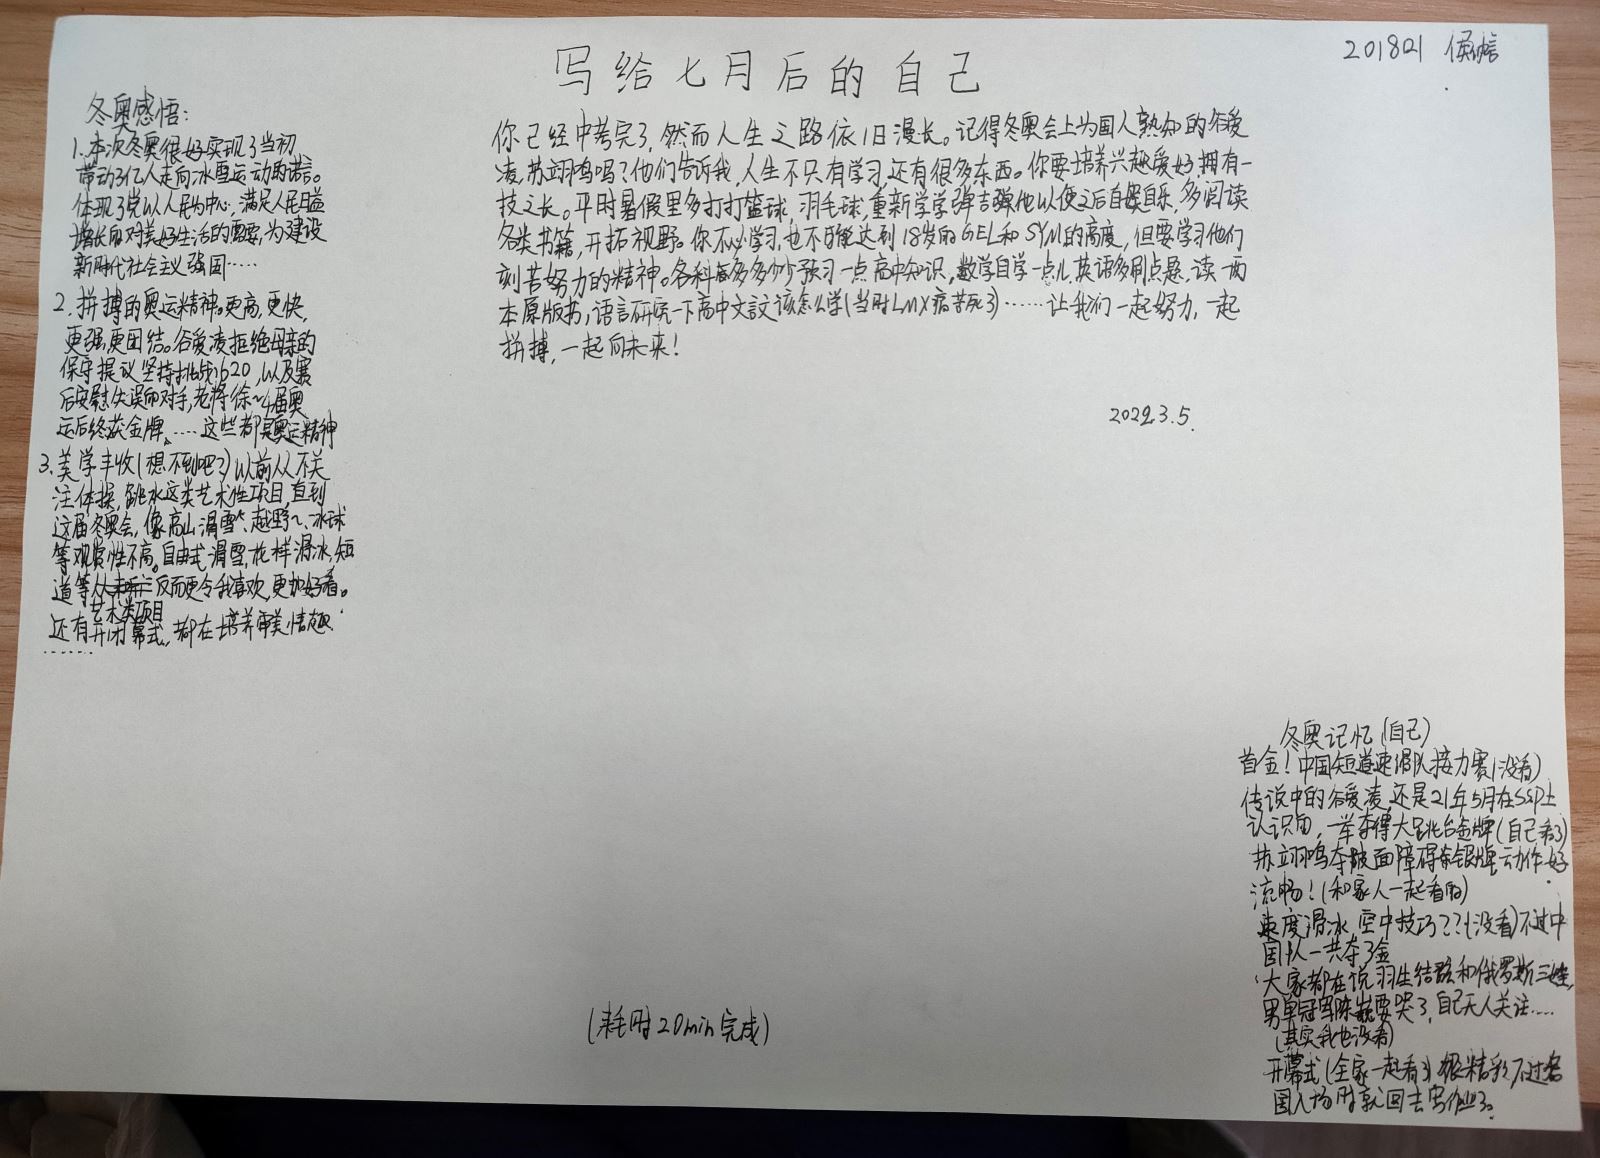 写给七月后的自己
201821
冬奥感悟:
1.本次冬奥很好实现了当初
带动3亿人走向冰雪运动的诺言。
体现了党以人民为中心,满足人民日益
增长的对美好生活的需要,为建设
新时代社会主义强国……
2.拼搏的奥运精神。更高,更快,
更强,更团结。谷爱凌拒绝母亲的
保守提议坚持挑战1620,以及赛
后安慰失误的对手,老将徐~4届奥
运后终获金牌,……这些都是奥运精神
3.美学丰收(想不到吧?)以前从不关
注体操,跳水这类艺术性项目,直到
这届冬奥会,像高山滑雪、越野~、冰球
等观赏性不高。自由式滑雪,花样滑冰,短
道等反而更令我喜欢,更加好看。
艺术类项目
还有开闭幕式,都在培养审美情趣.
……
你已经中考完了,然而人生之路依旧漫长。记得冬奥会上为国人熟知的谷爱
凌,苏翊鸣吗?他们告诉我,人生不只有学习,还有很多东西。你要培养兴趣爱好,拥有一
技之长。平时暑假里多打打篮球,羽毛球,重新学学弹吉他以便之后自娱自乐,多阅读
各类书籍,开拓视野。你不必学习,也不可能达到18岁的GEL和SYM的高度,但要学习他们
刻苦努力的精神。各科每多多少少预习一点高中知识,数学自学一点儿,英语多刷点题,读一两
本原版书,语言研究一下高中文言文该怎么学(当时LMX痛苦死了)……让我们一起努力,一起
拼搏,一起向未来!
2022.3.5.
冬奥记忆(自己)
首金!中国短道速滑队接力赛(没看)
传说中的谷爱凌,还是21年5月在SSP上
认识的,一举夺得大跳台金牌(自己看了)
苏翊鸣夺坡面障碍赛银牌,动作好
流畅!(和家人一起看的)
速度滑冰,空中技巧??(没看)不过中
国队一共夺了金
大家都在说羽生结弦和俄罗斯三娃,
男单冠军陈巍要哭了,自己无人关注……
(其实我也没看)
开幕式(全家一起看了)很精彩,不过各
国入场时就回去写作业了。
(耗时20min完成)